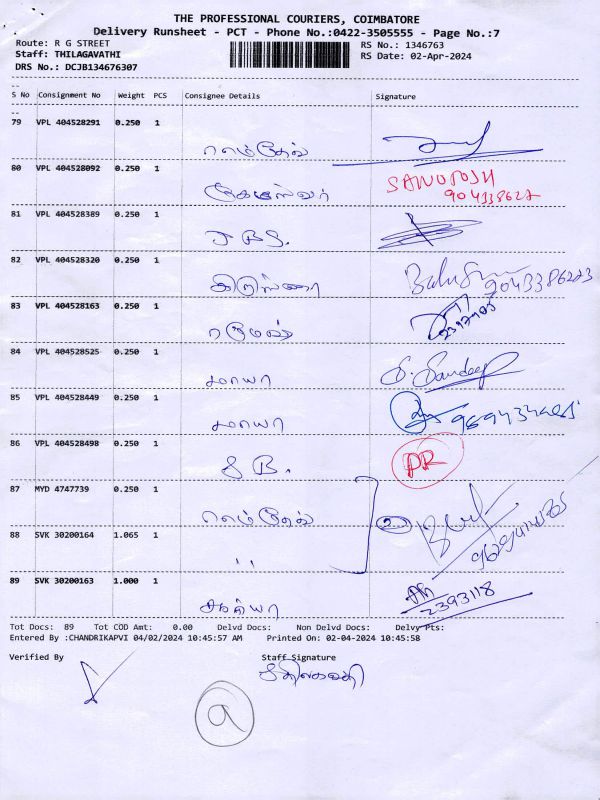 THE PROFESSIONAL COURIERS, COIMBATORE
Delivery Runsheet - PCT - Phone No.:0422-3505555 - Page No.:7
Route: R G STREET
RS No.: 1346763
Staff: THILAGAVATHI
RS Date: 02-Apr-2024
DRS No.: DCJB134676307
S No Consignment No Weight PCS Consignee Details Signature
79 VPL 404528291 0.250 1
80 VPL 404528092 0.250 1
81 VPL 404528389 0.250 1
J B S.
82 VPL 404528320 0.250 1
கிருஸ்ணா
83 VPL 404528163 0.250 1
ரமேஷ்
84 VPL 404528525 0.250 1
S. Sandeep
மாயா
85 VPL 404528449 0.250 1
மாயா
86 VPL 404528498 0.250 1
S B. PR
87 MYD 4747739 0.250 1
88 SVK 30200164 1.065 1
''
89 SVK 30200163 1.000 1
2393118
Tot Docs: 89 Tot COD Amt: 0.00 Delvd Docs: Non Delvd Docs: Delvy Pts:
Entered By :CHANDRIKAPVI 04/02/2024 10:45:57 AM Printed On: 02-04-2024 10:45:58
Verified By Staff Signature
9